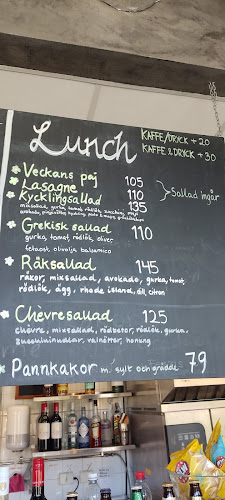 Lunch
KAFFE/DRYCK + 20
KAFFE & DRYCK + 30
Veckans paj 105
Lasagne 110
Kycklingsallad 135
Sallad ingår
mixsallad, gurka, tomat, rödlök, zucchini, majs
avokado,
Grekisk sallad 110
gurka, tomat, rödlök, oliver
fetaost, olivolja balsamico
Räksallad 145
räkor, mixsallad, avokado, gurka, tomat,
rödlök, ägg, rhode island, dill, citron
Chèvresallad 125
chèvre, mixsallad, rödbetor, rödlök, gurka,
zucchininudlar, valnötter, honung
Pannkakor m. sylt och grädde 79